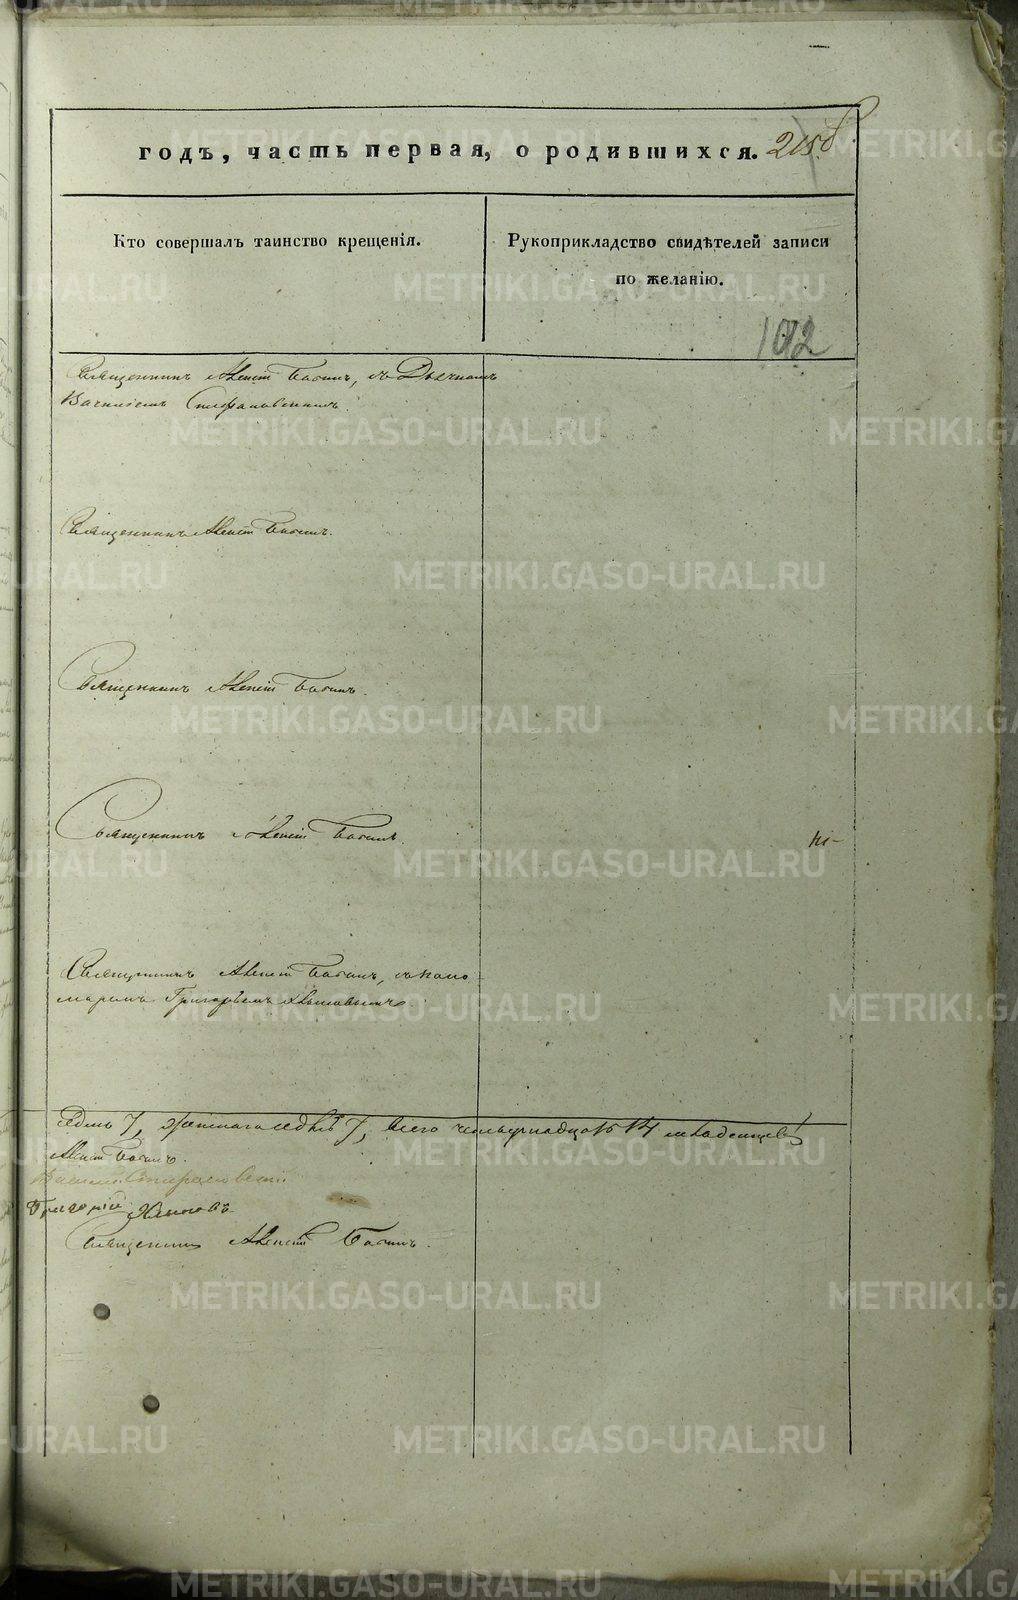 годъ, часть первая, о родившихся. 215
Кто совершалъ таинство крещенія.
Рукоприкладство свидѣтелей записи
по желанію.
1012
Священникъ Алексій Бабинъ, съ Дьячкомъ
Василіемъ Стефановскимъ.
Священникъ Алексій Бабинъ.
Священникъ Алексій Бабинъ.
Священникъ Алексій Бабинъ.
Священникъ Алексій Бабинъ, съ поно
маремъ Григорьемъ
седмь 7, женскаго седмь 7, всего четырнадцать 14 младенцевъ
Алексій Бабинъ.
Василій
Григорій
Священникъ Алексій Бабинъ.
METRIKI.GASO-URAL.RU